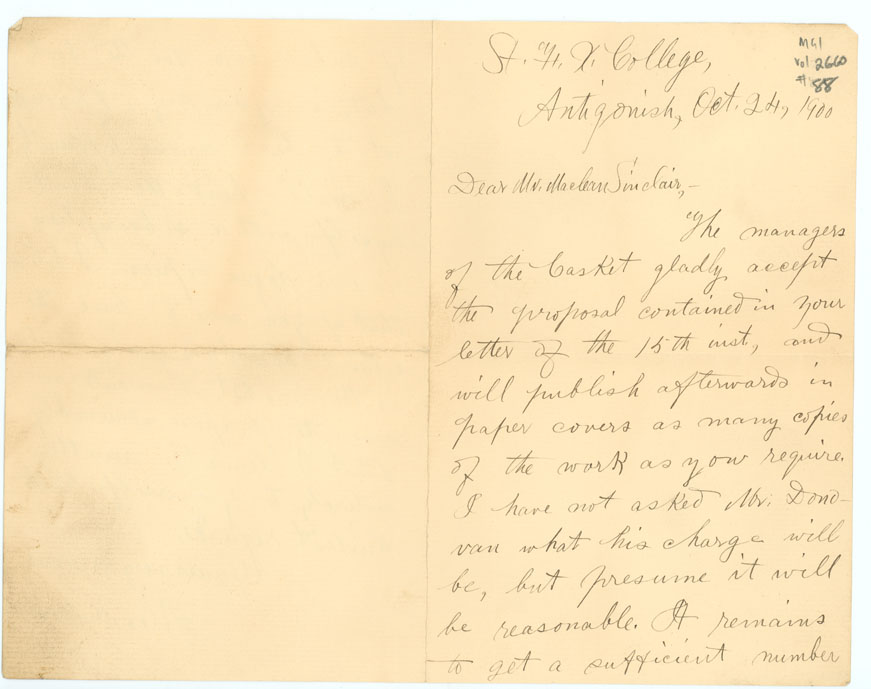 MG1
vol 2660
# 88
St. F. X. College,
Antigonish, Oct. 24, 1900
Dear Mr. Maclean Sinclair,—
The managers
of the Casket gladly accept
the proposal contained in your
letter of the 15th inst., and
will publish afterwards in
paper covers as many copies
of the work as you require.
I have not asked Mr. Dono-
van what his charge will
be, but presume it will
be reasonable. It remains
to get a sufficient number